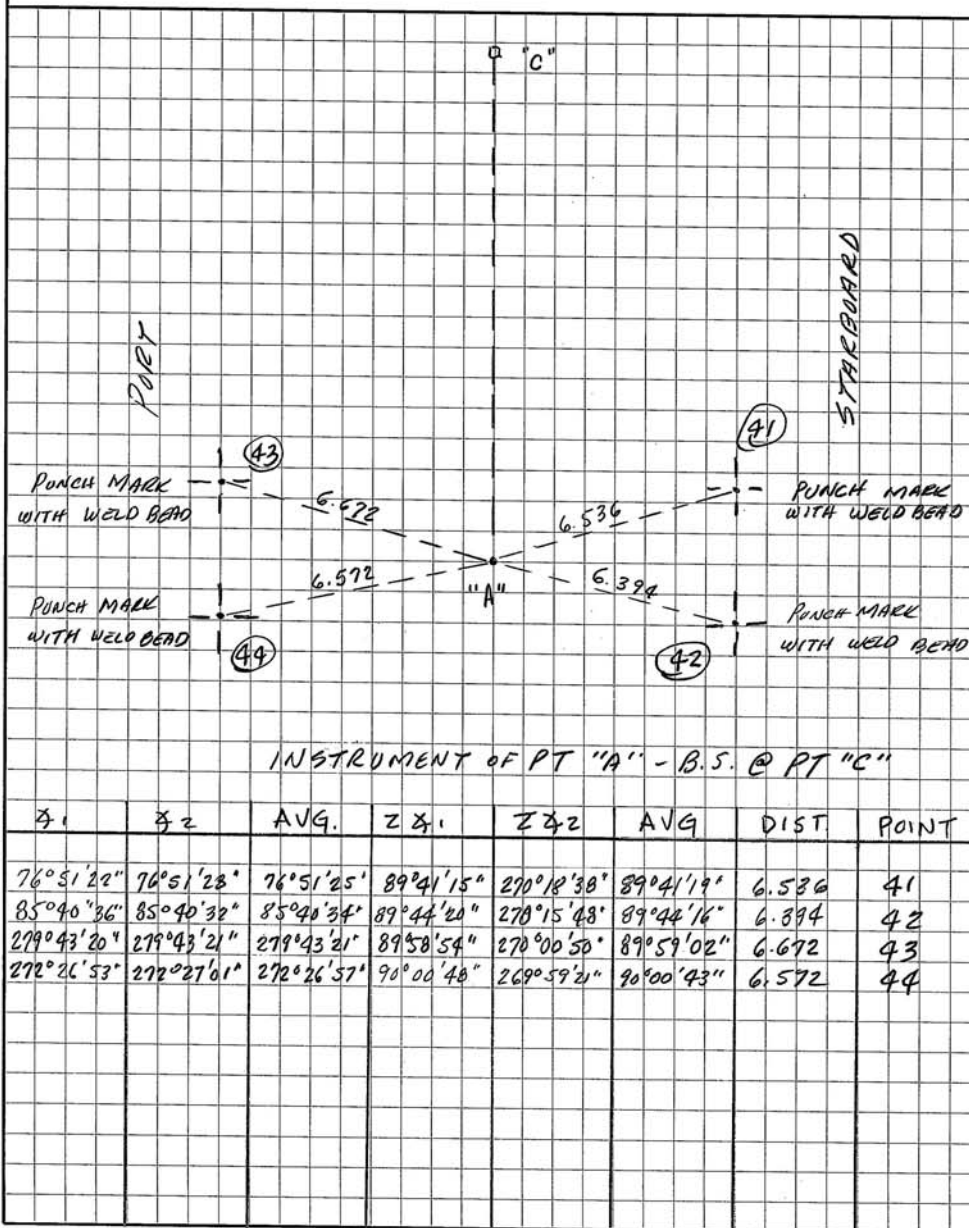 "C"
PORT
STARBOARD
43
41
PUNCH MARK
WITH WELD BEAD
6.672
6.536
PUNCH MARK
WITH WELD BEAD
6.572
"A"
6.394
PUNCH MARK
WITH WELD BEAD
44
42
PUNCH MARK
WITH WELD BEAD
INSTRUMENT OF PT "A" - B.S. @ PT "C"
∡1 ∡2 AVG. Z∡1 Z∡2 AVG DIST. POINT
76°51'22" 76°51'28" 76°51'25" 89°41'15" 270°18'38" 89°41'19" 6.536 41
85°40"36" 85°40'32" 85°40'34" 89°44'20" 270°15'48" 89°44'16" 6.394 42
279°43'20" 279°43'21" 279°43'21" 89°58'54" 270°00'50" 89°59'02" 6.672 43
272°26'53" 272°27'01" 272°26'57" 90°00'48" 269°59'21" 90°00'43" 6.572 44